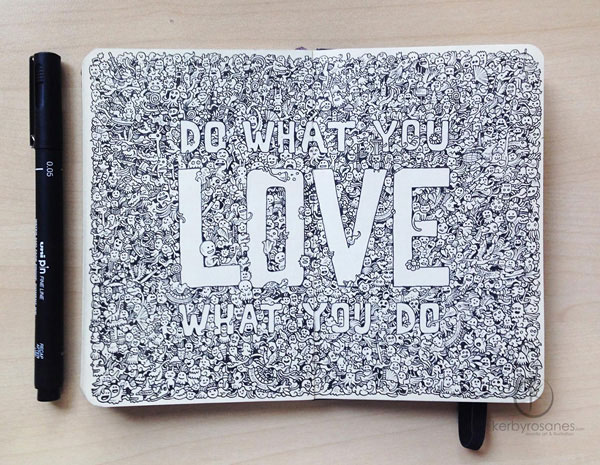 DO WHAT YOU
LOVE
WHAT YOU DO
0.05
uni pin FINE LINE
kerbyrosanes.com